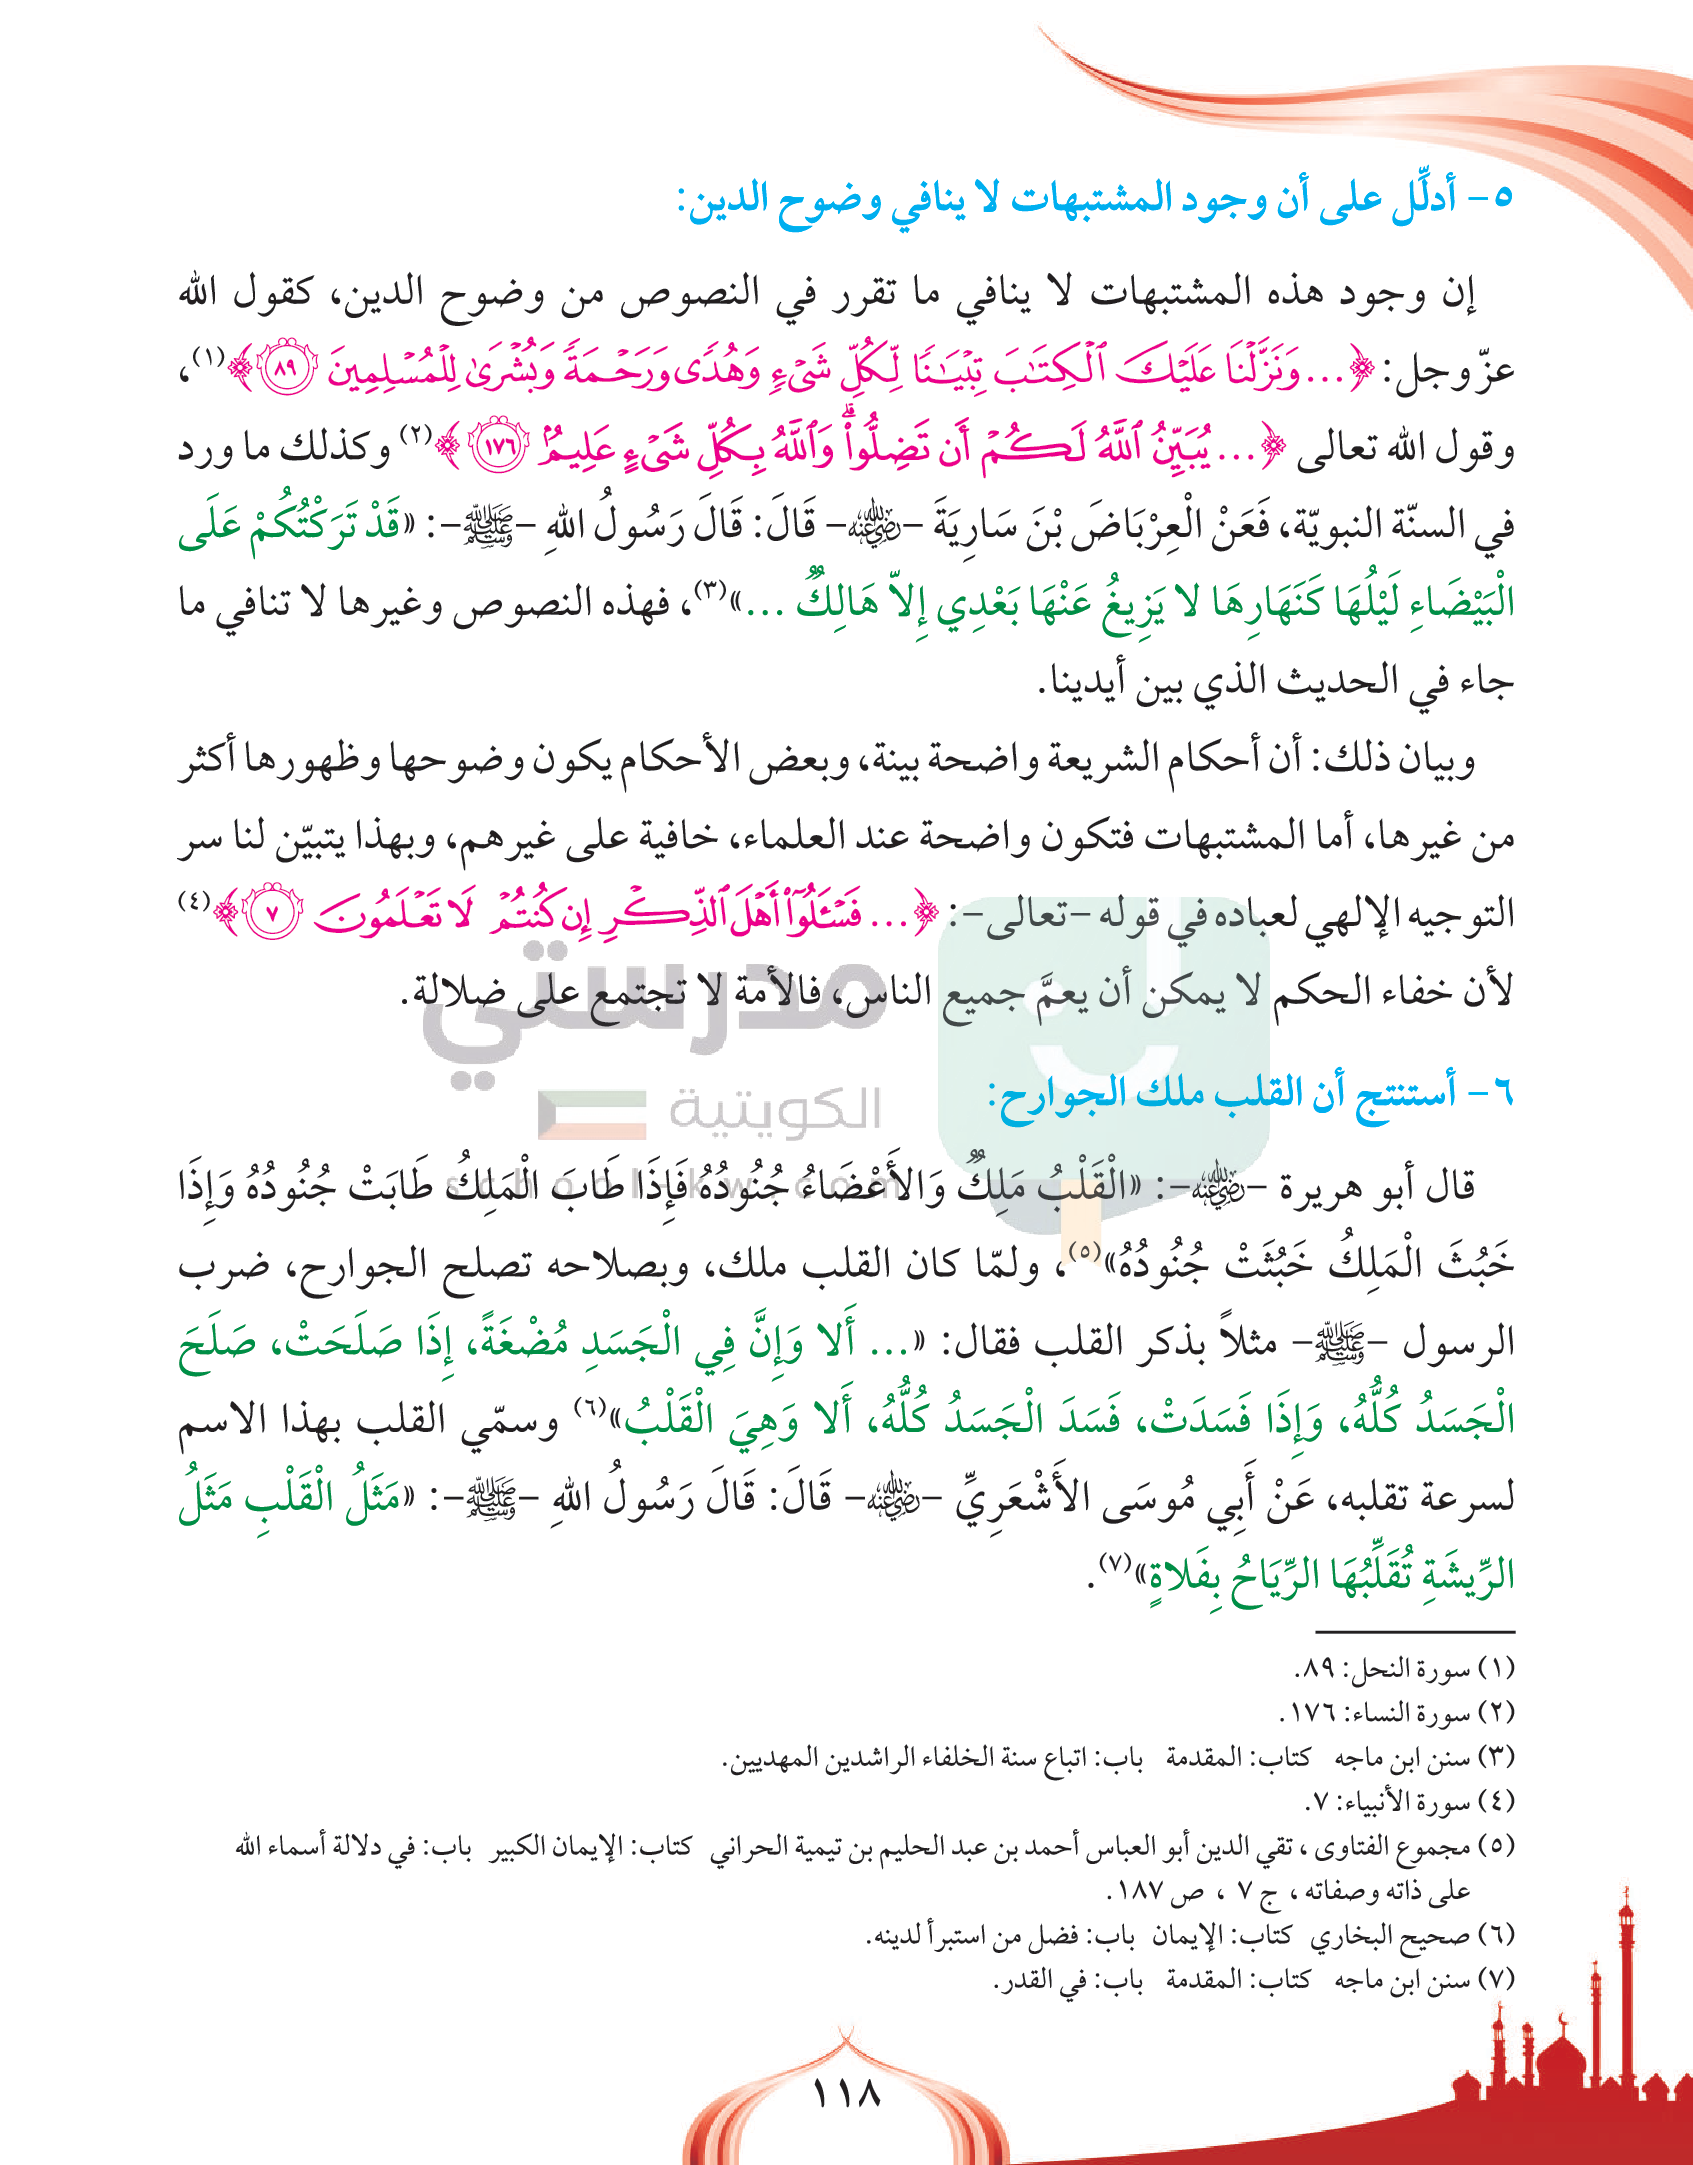 ٥- أدلِّل على أن وجود المشتبهات لا ينافي وضوح الدين:
إن وجود هذه المشتبهات لا ينافي ما تقرر في النصوص من وضوح الدين، كقول الله
عزّ وجل: ﴿... وَنَزَّلْنَا عَلَيْكَ ٱلْكِتَٰبَ تِبْيَٰنًا لِّكُلِّ شَىْءٍ وَهُدًى وَرَحْمَةً وَبُشْرَىٰ لِلْمُسْلِمِينَ ٨٩﴾(١)،
وقول الله تعالى ﴿... يُبَيِّنُ ٱللَّهُ لَكُمْ أَن تَضِلُّوا۟ ۗ وَٱللَّهُ بِكُلِّ شَىْءٍ عَلِيمٌۢ ١٧٦﴾(٢) وكذلك ما ورد
في السنّة النبويّة، فَعَنْ الْعِرْبَاضَ بْنَ سَارِيَةَ -رضي الله عنه- قَالَ: قَالَ رَسُولُ اللهِ -ﷺ-: «قَدْ تَرَكْتُكُمْ عَلَى
الْبَيْضَاءِ لَيْلُهَا كَنَهَارِهَا لا يَزِيغُ عَنْهَا بَعْدِي إِلاّ هَالِكٌ ...»(٣)، فهذه النصوص وغيرها لا تنافي ما
جاء في الحديث الذي بين أيدينا.
وبيان ذلك: أن أحكام الشريعة واضحة بينة، وبعض الأحكام يكون وضوحها وظهورها أكثر
من غيرها، أما المشتبهات فتكون واضحة عند العلماء، خافية على غيرهم، وبهذا يتبيّن لنا سر
التوجيه الإلهي لعباده في قوله -تعالى-: ﴿... فَسْـَٔلُوٓا۟ أَهْلَ ٱلذِّكْرِ إِن كُنتُمْ لَا تَعْلَمُونَ ٧﴾(٤)
لأن خفاء الحكم لا يمكن أن يعمَّ جميع الناس، فالأمة لا تجتمع على ضلالة.
مدرستي
الكويتية
school-kw.com
٦- أستنتج أن القلب ملك الجوارح:
قال أبو هريرة -رضي الله عنه-: «الْقَلْبُ مَلِكٌ وَالأَعْضَاءُ جُنُودُهُ فَإِذَا طَابَ الْمَلِكُ طَابَتْ جُنُودُهُ وَإِذَا
خَبُثَ الْمَلِكُ خَبُثَتْ جُنُودُهُ»(٥)، ولمّا كان القلب ملك، وبصلاحه تصلح الجوارح، ضرب
الرسول -ﷺ- مثلاً بذكر القلب فقال: «... أَلا وَإِنَّ فِي الْجَسَدِ مُضْغَةً، إِذَا صَلَحَتْ، صَلَحَ
الْجَسَدُ كُلُّهُ، وَإِذَا فَسَدَتْ، فَسَدَ الْجَسَدُ كُلُّهُ، أَلا وَهِيَ الْقَلْبُ»(٦) وسمّي القلب بهذا الاسم
لسرعة تقلبه، عَنْ أَبِي مُوسَى الأَشْعَرِيِّ -رضي الله عنه- قَالَ: قَالَ رَسُولُ اللهِ -ﷺ-: «مَثَلُ الْقَلْبِ مَثَلُ
الرِّيشَةِ تُقَلِّبُهَا الرِّيَاحُ بِفَلاةٍ»(٧).
(١) سورة النحل: ٨٩.
(٢) سورة النساء: ١٧٦.
(٣) سنن ابن ماجه كتاب: المقدمة باب: اتباع سنة الخلفاء الراشدين المهديين.
(٤) سورة الأنبياء: ٧.
(٥) مجموع الفتاوى ، تقي الدين أبو العباس أحمد بن عبد الحليم بن تيمية الحراني كتاب: الإيمان الكبير باب: في دلالة أسماء الله
على ذاته وصفاته ، ج ٧ ، ص ١٨٧.
(٦) صحيح البخاري كتاب: الإيمان باب: فضل من استبرأ لدينه.
(٧) سنن ابن ماجه كتاب: المقدمة باب: في القدر.
١١٨